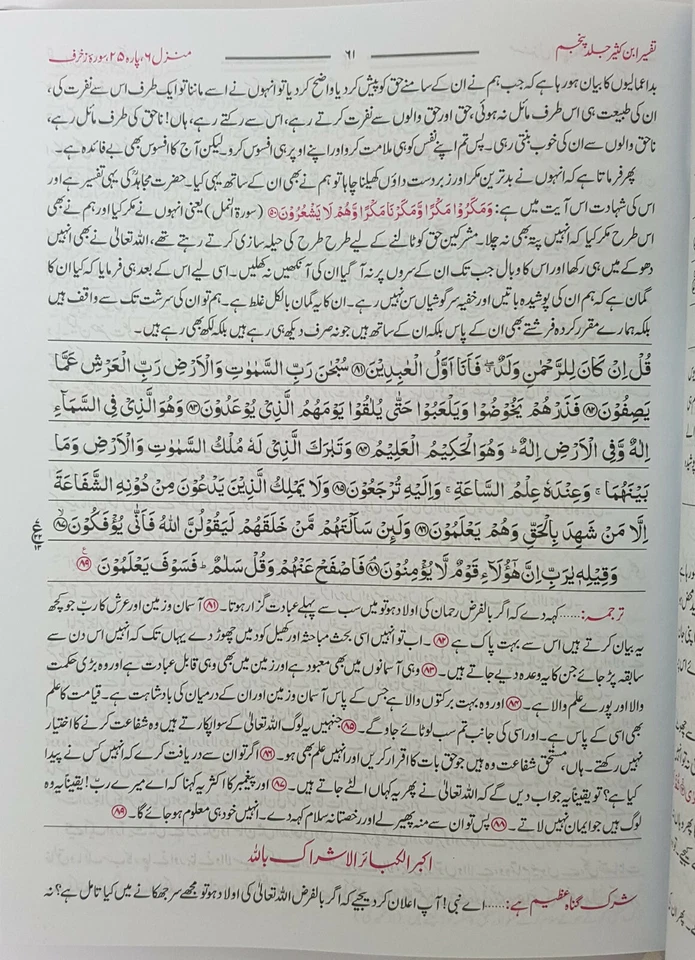 تفسیر ابن کثیر جلد پنجم ۶۱ منزل ۶، پارہ ۲۵، سورۂ زخرف
بداعمالیوں کا بیان ہو رہا ہے کہ جب ہم نے ان کے سامنے حق کو پیش کر دیا واضح کر دیا تو انہوں نے اسے ماننا تو ایک طرف اس سے نفرت کی،
ان کی طبیعت ہی اس طرف مائل نہ ہوئی، حق اور حق والوں سے نفرت کرتے رہے، اس سے رکتے رہے، ہاں! ناحق کی طرف مائل رہے،
ناحق والوں سے ان کی خوب بنتی رہی۔ پس تم اپنے نفس کو ہی ملامت کرو اور اپنے اوپر ہی افسوس کرو لیکن آج کا افسوس بھی بے فائدہ ہے۔
پھر فرماتا ہے کہ انہوں نے بدترین مکر اور زبردست داؤں کھیلنا چاہا تو ہم نے بھی ان کے ساتھ یہی کیا۔ حضرت مجاہدؒ کی یہی تفسیر ہے اور
اس کی شہادت اس آیت میں ہے: وَمَكَرُوْا مَكْرًا وَّمَكَرْنَا مَكْرًا وَّهُمْ لَا يَشْعُرُوْنَ ۵۰ (سورۃ النمل) یعنی انہوں نے مکر کیا اور ہم نے بھی
اس طرح مکر کیا کہ انہیں پتہ بھی نہ چلا۔ مشرکین حق کو ٹالنے کے لیے طرح طرح کی حیلہ سازی کرتے رہتے تھے، اللہ تعالٰی نے بھی انہیں
دھوکے میں ہی رکھا اور اس کا وبال جب تک ان کے سروں پر نہ آ گیا ان کی آنکھیں نہ کھلیں۔ اسی لیے اس کے بعد ہی فرمایا کہ کیا ان کا
گمان ہے کہ ہم ان کی پوشیدہ باتیں اور خفیہ سرگوشیاں سن نہیں رہے۔ ان کا یہ گمان بالکل غلط ہے۔ ہم تو ان کی سرشت تک سے واقف ہیں
بلکہ ہمارے مقرر کردہ فرشتے بھی ان کے پاس بلکہ ان کے ساتھ ہیں جو نہ صرف دیکھ ہی رہے ہیں بلکہ لکھ بھی رہے ہیں۔
قُلْ اِنْ كَانَ لِلرَّحْمٰنِ وَلَدٌ ۖ فَاَنَا اَوَّلُ الْعٰبِدِيْنَ ۸۱ سُبْحٰنَ رَبِّ السَّمٰوٰتِ وَالْاَرْضِ رَبِّ الْعَرْشِ عَمَّا
يَصِفُوْنَ ۸۲ فَذَرْهُمْ يَخُوْضُوْا وَيَلْعَبُوْا حَتّٰى يُلٰقُوْا يَوْمَهُمُ الَّذِيْ يُوْعَدُوْنَ ۸۳ وَهُوَ الَّذِيْ فِي السَّمَآءِ
اِلٰهٌ وَّفِي الْاَرْضِ اِلٰهٌ ؕ وَهُوَ الْحَكِيْمُ الْعَلِيْمُ ۸۴ وَتَبٰرَكَ الَّذِيْ لَهٗ مُلْكُ السَّمٰوٰتِ وَالْاَرْضِ وَمَا
بَيْنَهُمَا ۚ وَعِنْدَهٗ عِلْمُ السَّاعَةِ ۚ وَاِلَيْهِ تُرْجَعُوْنَ ۸۵ وَلَا يَمْلِكُ الَّذِيْنَ يَدْعُوْنَ مِنْ دُوْنِهِ الشَّفَاعَةَ
اِلَّا مَنْ شَهِدَ بِالْحَقِّ وَهُمْ يَعْلَمُوْنَ ۸۶ وَلَئِنْ سَاَلْتَهُمْ مَّنْ خَلَقَهُمْ لَيَقُوْلُنَّ اللّٰهُ فَاَنّٰى يُؤْفَكُوْنَ ۸۷
وَقِيْلِهٖ يٰرَبِّ اِنَّ هٰٓؤُلَآءِ قَوْمٌ لَّا يُؤْمِنُوْنَ ۸۸ فَاصْفَحْ عَنْهُمْ وَقُلْ سَلٰمٌ ؕ فَسَوْفَ يَعْلَمُوْنَ ۸۹
ترجمہ:......کہہ دے کہ اگر بالفرض رحمان کی اولاد ہو تو میں سب سے پہلے عبادت گزار ہوتا۔ ۸۱ آسمان و زمین اور عرش کا رب جو کچھ
یہ بیان کرتے ہیں اس سے بہت پاک ہے ۸۲۔ اب تو انہیں اسی بحث مباحثہ اور کھیل کود میں چھوڑ دے یہاں تک کہ انہیں اس دن سے
سابقہ پڑ جائے جن کا یہ وعدہ دیے جاتے ہیں۔ ۸۳ وہی آسمانوں میں بھی معبود ہے اور زمین میں بھی وہی قابل عبادت ہے اور وہ بڑی حکمت
والا اور پورے علم والا ہے۔ ۸۴ اور وہ بہت برکتوں والا ہے جس کے پاس آسمان و زمین اور ان کے درمیان کی بادشاہت ہے۔ قیامت کا علم
بھی اسی کے پاس ہے۔ اور اسی کی جانب تم سب لوٹائے جاؤ گے۔ ۸۵ جنہیں یہ لوگ اللہ تعالٰی کے سوا پکارتے ہیں وہ شفاعت کرنے کا اختیار
نہیں رکھتے۔ ہاں، مستحق شفاعت وہ ہیں جو حق بات کا اقرار کریں اور انہیں علم بھی ہو۔ ۸۶ اگر تو ان سے دریافت کرے کہ انہیں کس نے پیدا
کیا ہے؟ تو یقینا یہ جواب دیں گے کہ اللہ تعالٰی نے پھر یہ کہاں الٹے جاتے ہیں۔ ۸۷ اور پیغمبر کا اکثر یہ کہنا کہ اے میرے رب! یقینا یہ وہ
لوگ ہیں جو ایمان نہیں لاتے۔ ۸۸ پس تو ان سے منہ پھیر لے اور رخصتانہ سلام کہہ دے۔ انہیں خود ہی معلوم ہو جائے گا۔ ۸۹
اکبر الکبائر الاشراک باللہ
شرک گناہ عظیم ہے:......اے نبی! آپ اعلان کر دیجیے کہ اگر بالفرض اللہ تعالٰی کی اولاد ہو تو مجھے سر جھکانے میں کیا تامل ہے؟ نہ